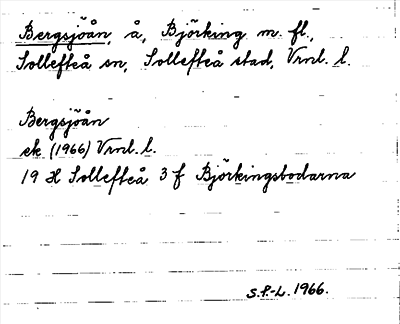 Bergsjöån, å, Björking m. fl.,
Sollefteå sn, Sollefteå stad, Vrml. l.
Bergsjöån
ek (1966) Vrml. l.
19 H Sollefteå 3 f Björkingsbodarna
S.P.-L. 1966.